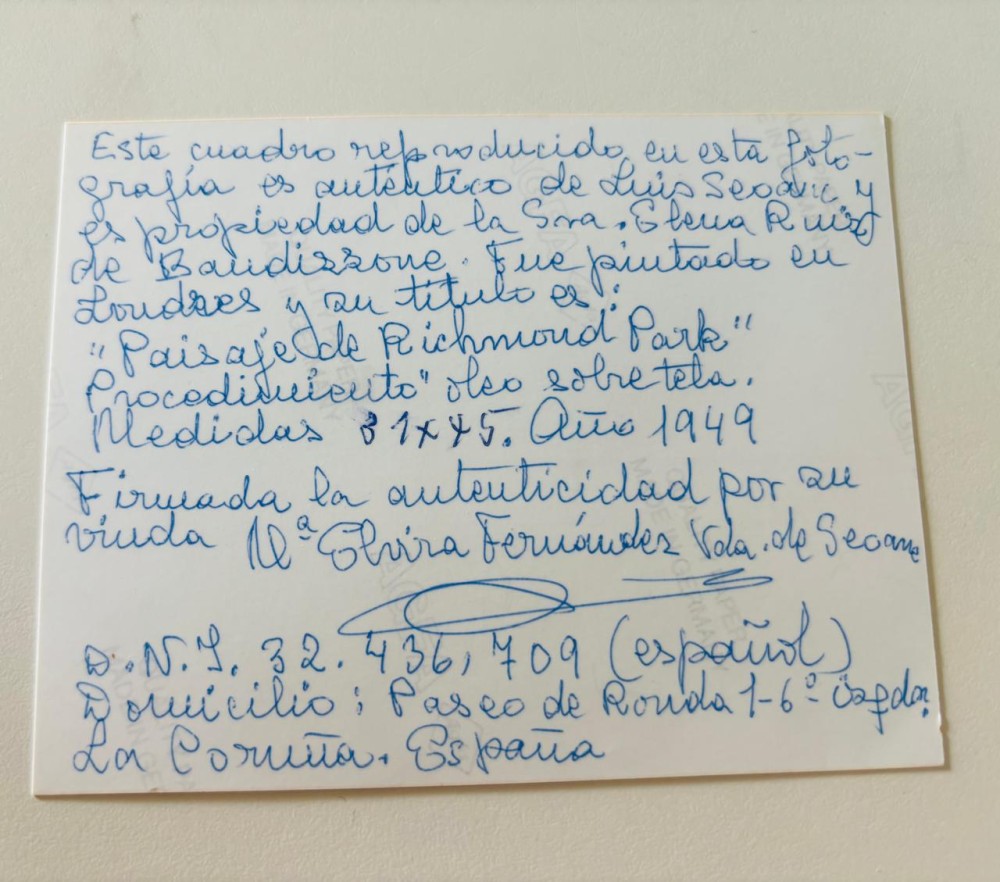 Este cuadro reproducido en esta foto-
grafía es auténtico de Luis Seoane y
es propiedad de la Sra. Elena Ruiz
de Baudizzone. Fue pintado en
Londres y su título es:
"Paisaje de Richmond Park"
Procedimiento" óleo sobre tela.
Medidas 31x45. Año 1949
Firmada la autenticidad por su
viuda Mª Elvira Fernández Vda. de Seoane
D.N.I. 32.436,709 (español)
Domicilio: Paseo de Ronda 1-6º-izqda.
La Coruña. España